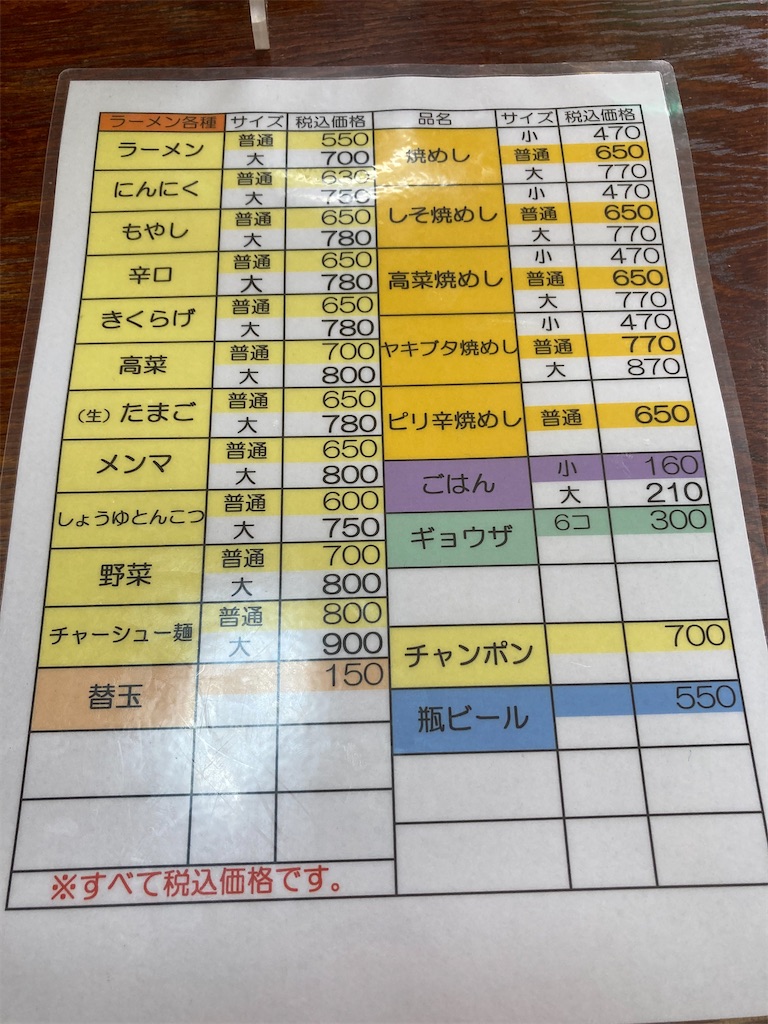 ラーメン各種 サイズ 税込価格
ラーメン 普通 550
大 700
にんにく 普通 630
大 750
もやし 普通 650
大 780
辛口 普通 650
大 780
きくらげ 普通 650
大 780
高菜 普通 700
大 800
（生）たまご 普通 650
大 780
メンマ 普通 650
大 800
しょうゆとんこつ 普通 600
大 750
野菜 普通 700
大 800
チャーシュー麺 普通 800
大 900
替玉 150
※すべて税込価格です。
品名 サイズ 税込価格
焼めし 小 470
普通 650
大 770
しそ焼めし 小 470
普通 650
大 770
高菜焼めし 小 470
普通 650
大 770
ヤキブタ焼めし 小 470
普通 770
大 870
ピリ辛焼めし 普通 650
ごはん 小 160
大 210
ギョウザ 6コ 300
チャンポン 700
瓶ビール 550